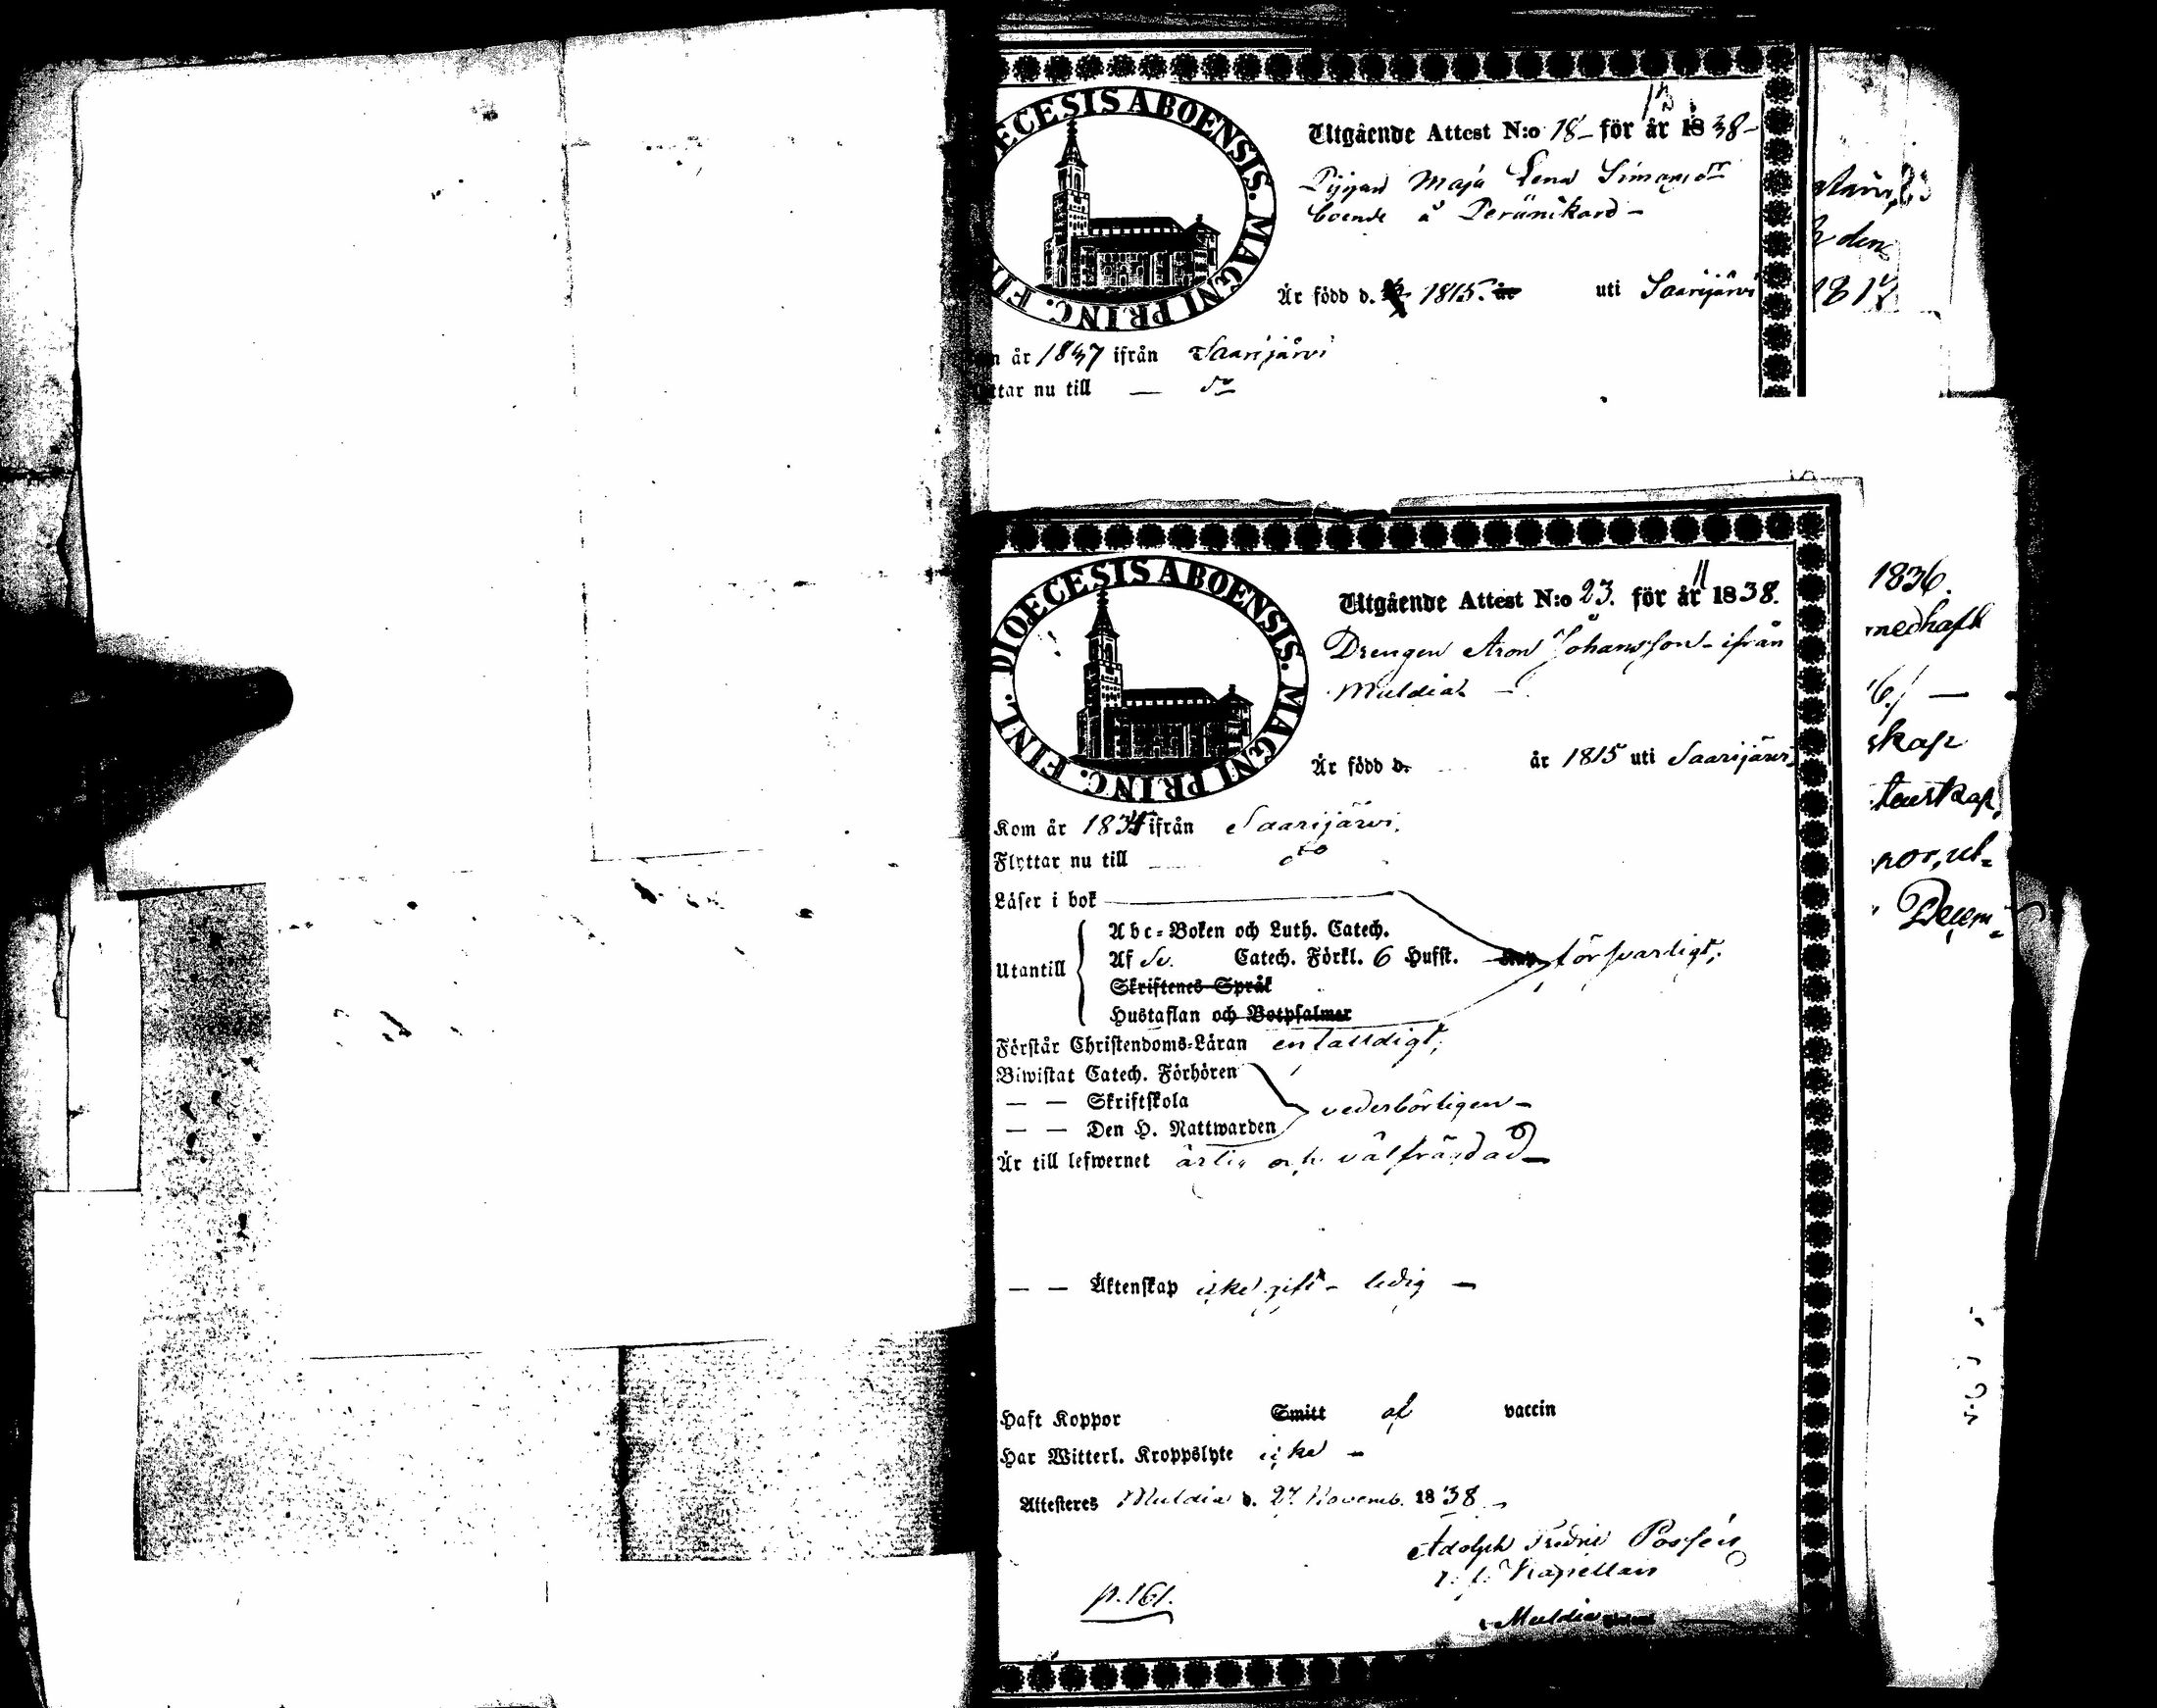 DIOECESIS ABOENSIS. MAGNI PRINC. FINL.
13
Utgående Attest N:o 18 – för år 1838 –
Pigan Maja Lena Simonsdr
boende å –
Är född d. 1815. år uti Saarijärvi
år 1837 ifrån Saarijärvi
ttar nu till — do
den
1817
DIOECESIS ABOENSIS. MAGNI PRINC. FINL.
11
Utgående Attest N:o 23. för år 1838.
Drengen Aron Johansson – ifrån
Muldia –
Är född d. år 1815 uti Saarijärvi
Kom år 1834 ifrån Saarijärvi.
Flyttar nu till — dto
Läser i bok
Utantill
Abc-Boken och Luth. Catech.
Af Sv. Catech. Förkl. 6 Hufst. försvarligt;
Skriftenes Språk
Hustaflan och Botpsalmer
Förstår Christendoms-Läran enfalldigt;
Biwistat Catech. Förhören
— — Skriftskola vederbörligen –
— — Den H. Nattwarden
Är till lefwernet ärlig och välfrägdad –
— — Äktenskap icke gift – ledig –
Haft Koppor Smitt af vaccin
Har Witterl. Kroppslyte icke –
Attesteres Muldia d. 27 Novemb. 1838 –
Adolph Fredric Possén
Kapellan
i Muldia
p. 161.
1836.
medhaft
6./ —
skap
tenskap,
por, ut=
Decem=